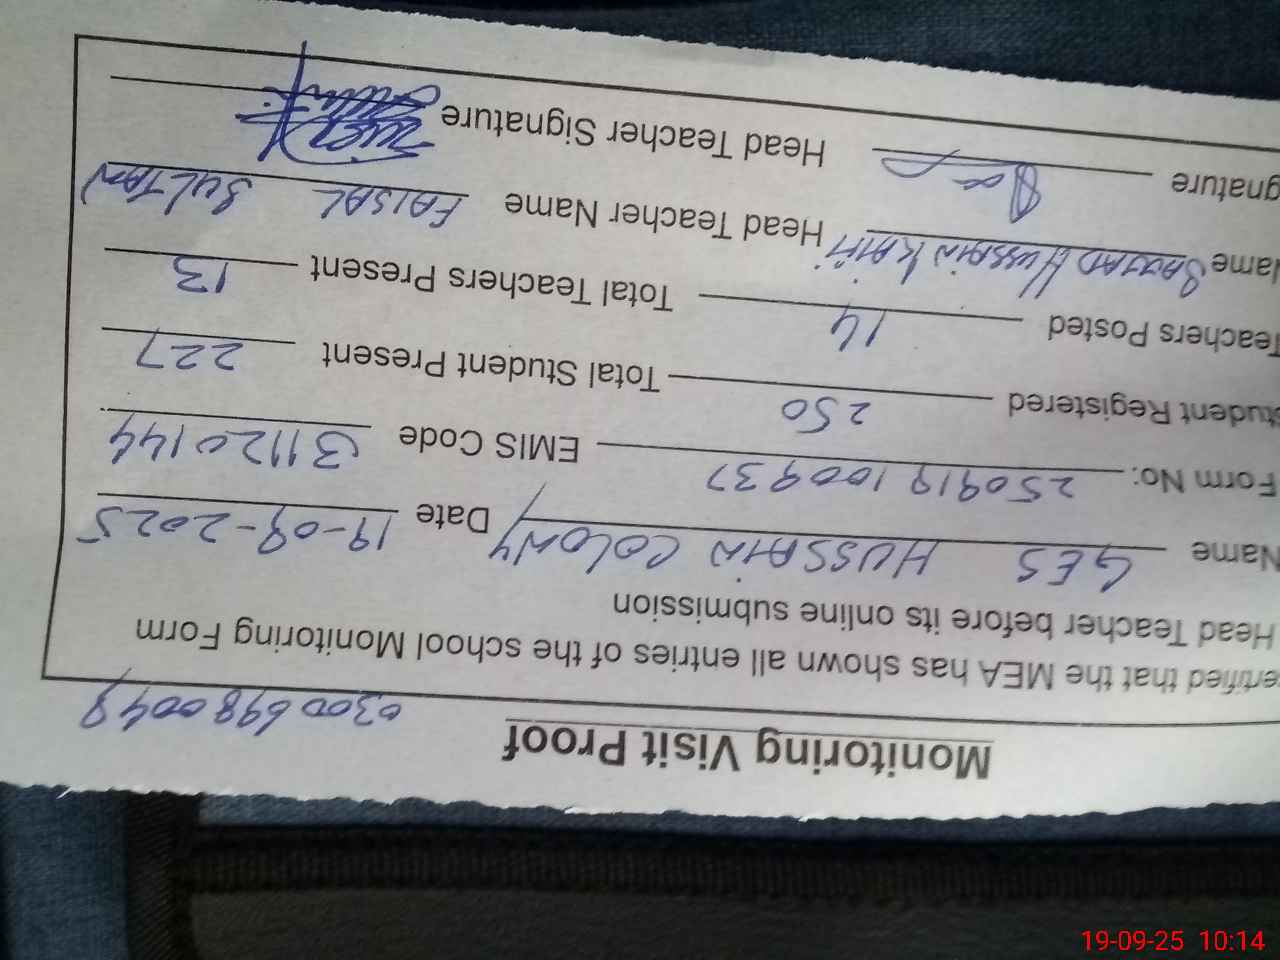 Monitoring Visit Proof
0300 698 0049
ertified that the MEA has shown all entries of the school Monitoring Form
Head Teacher before its online submission
Name GES HUSSAIN COLONY Date 19-09-2025
Form No: 250919100937 EMIS Code 31120144
tudent Registered 250 Total Student Present 227
Teachers Posted 14 Total Teachers Present 13
Name SAJJAD HUSSAIN Head Teacher Name FAISAL SULTAN
gnature Head Teacher Signature
19-09-25 10:14